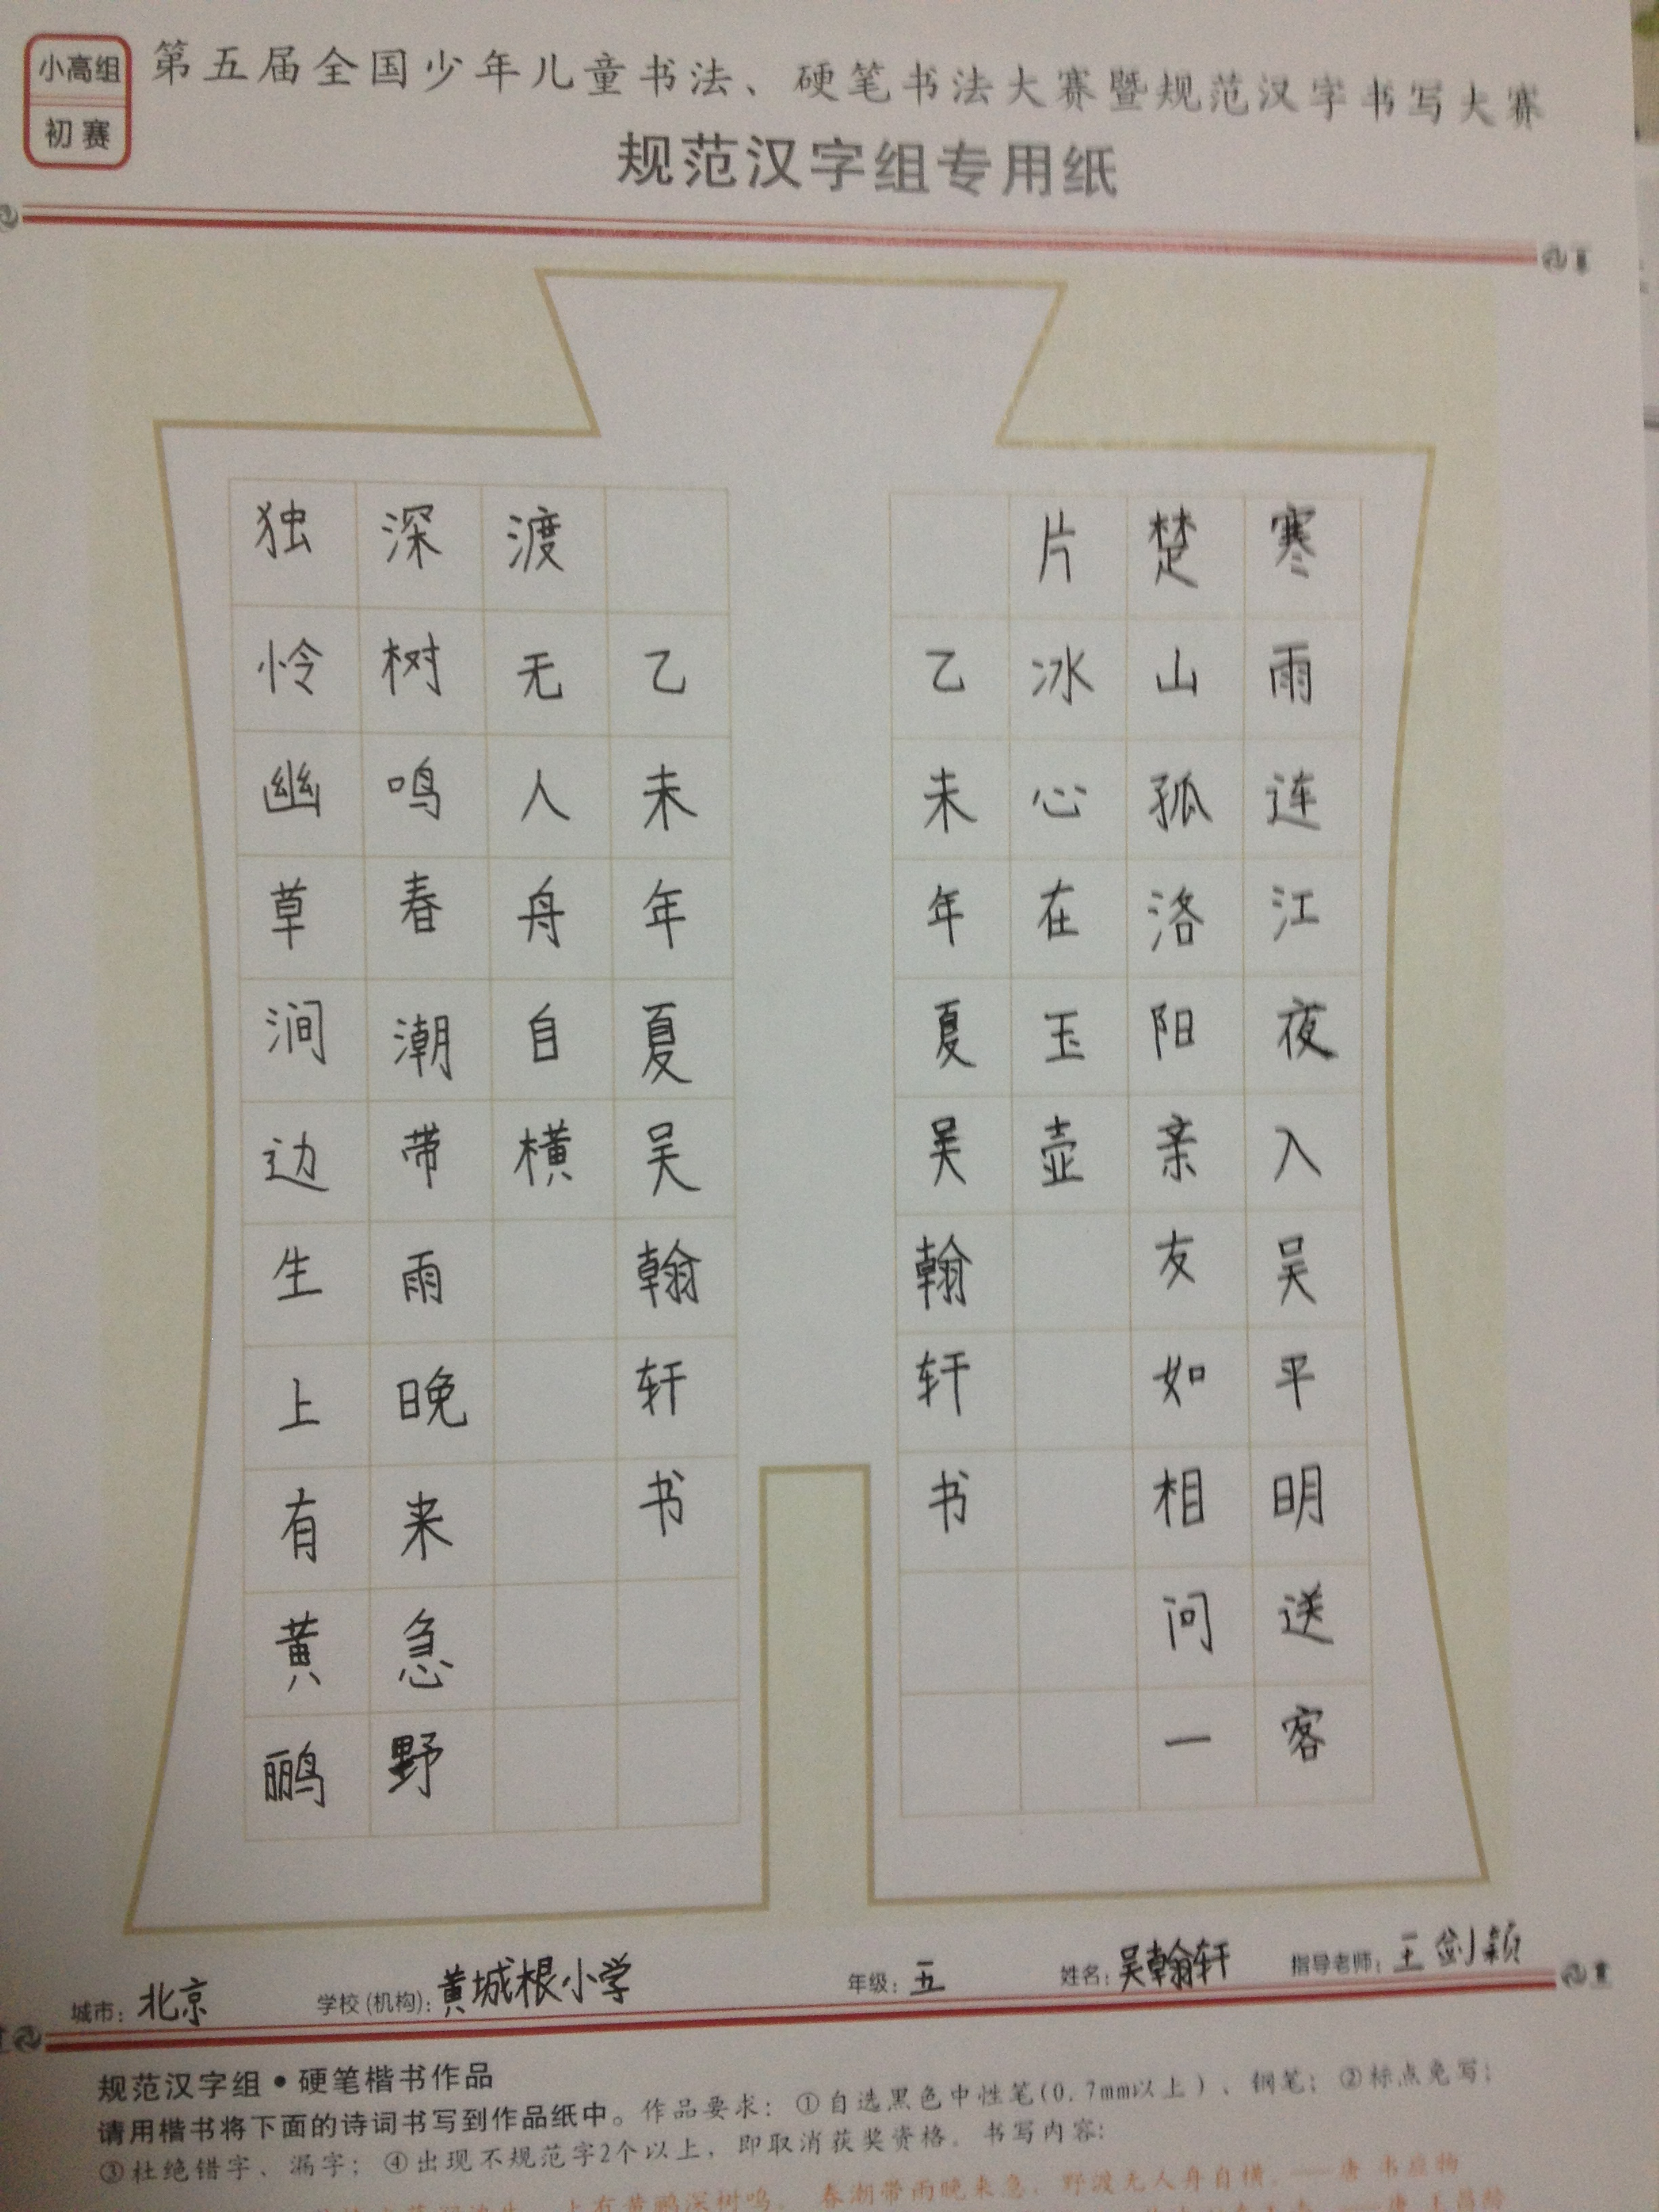 小高组
初赛
第五届全国少年儿童书法、硬笔书法大赛暨规范汉字书写大赛
规范汉字组专用纸
寒雨连江夜入吴平明送客
楚山孤洛阳亲友如相问一
片冰心在玉壶
乙未年夏吴翰轩书
独怜幽草涧边生上有黄鹂
深树鸣春潮带雨晚来急野
渡无人舟自横
乙未年夏吴翰轩书
城市：北京 学校(机构)：黄城根小学 年级：五 姓名：吴翰轩 指导老师：王剑颖
规范汉字组·硬笔楷书作品
请用楷书将下面的诗词书写到作品纸中。作品要求：①自选黑色中性笔(0.7mm以上)、钢笔；②标点免写；
③杜绝错字、漏字；④出现不规范字2个以上，即取消获奖资格。书写内容：
上有黄鹂深树鸣。春潮带雨晚来急，野渡无人舟自横。——唐 韦应物
——唐 王昌龄